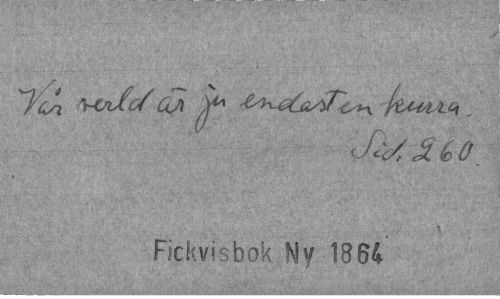 Vår verld är ju endast en kurra.
Sid. 260.
Fickvisbok Ny 1864